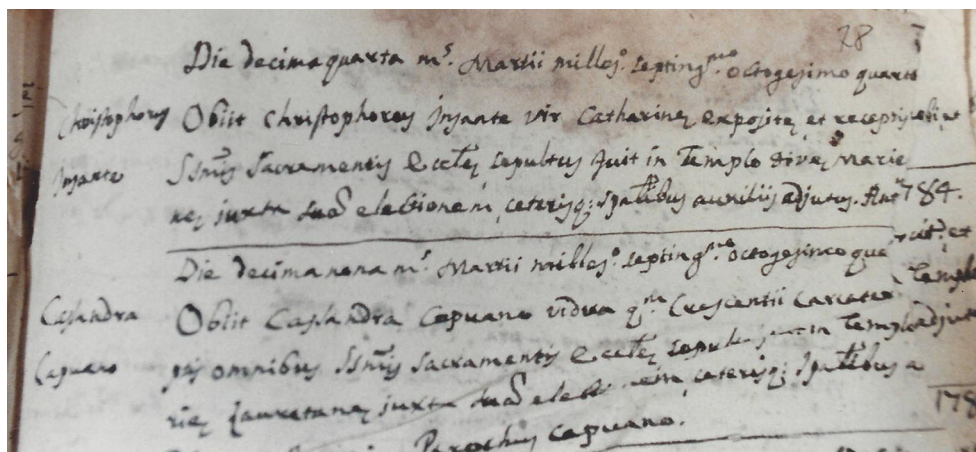 28
Die decimaquarta m.s Martii milles.o septing.mo octogesimo quarto
Christophorus Infante
Obiit Christophorus Infante vir Catharinę Expositę, et receptis
SSmis Sacramentis Ecclę, sepultus fuit in Templo Divę Marię
juxta suã electionem, ceterisq; spãlibus auxiliis adjutus. 1784.
Die decimanona m.s Martii milles.o septing.mo octogesimo qua
Casandra Capuano
Obiit Casandra Capuano vidua q.m Crescentii
omnibus SSmis Sacramentis Ecclę, in Templo
rię Lauretanę, juxta suã ceterisq; spãlibus a
Parochus Capuano.